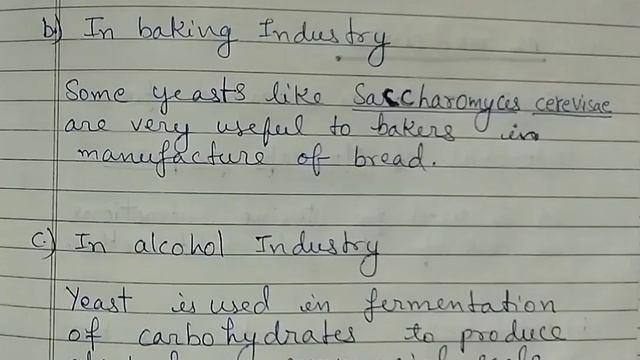 b) In baking Industry
Some yeasts like Saccharomyces cerevisae
are very useful to bakers in
manufacture of bread.
c) In alcohol Industry
Yeast is used in fermentation
of carbohydrates to produce